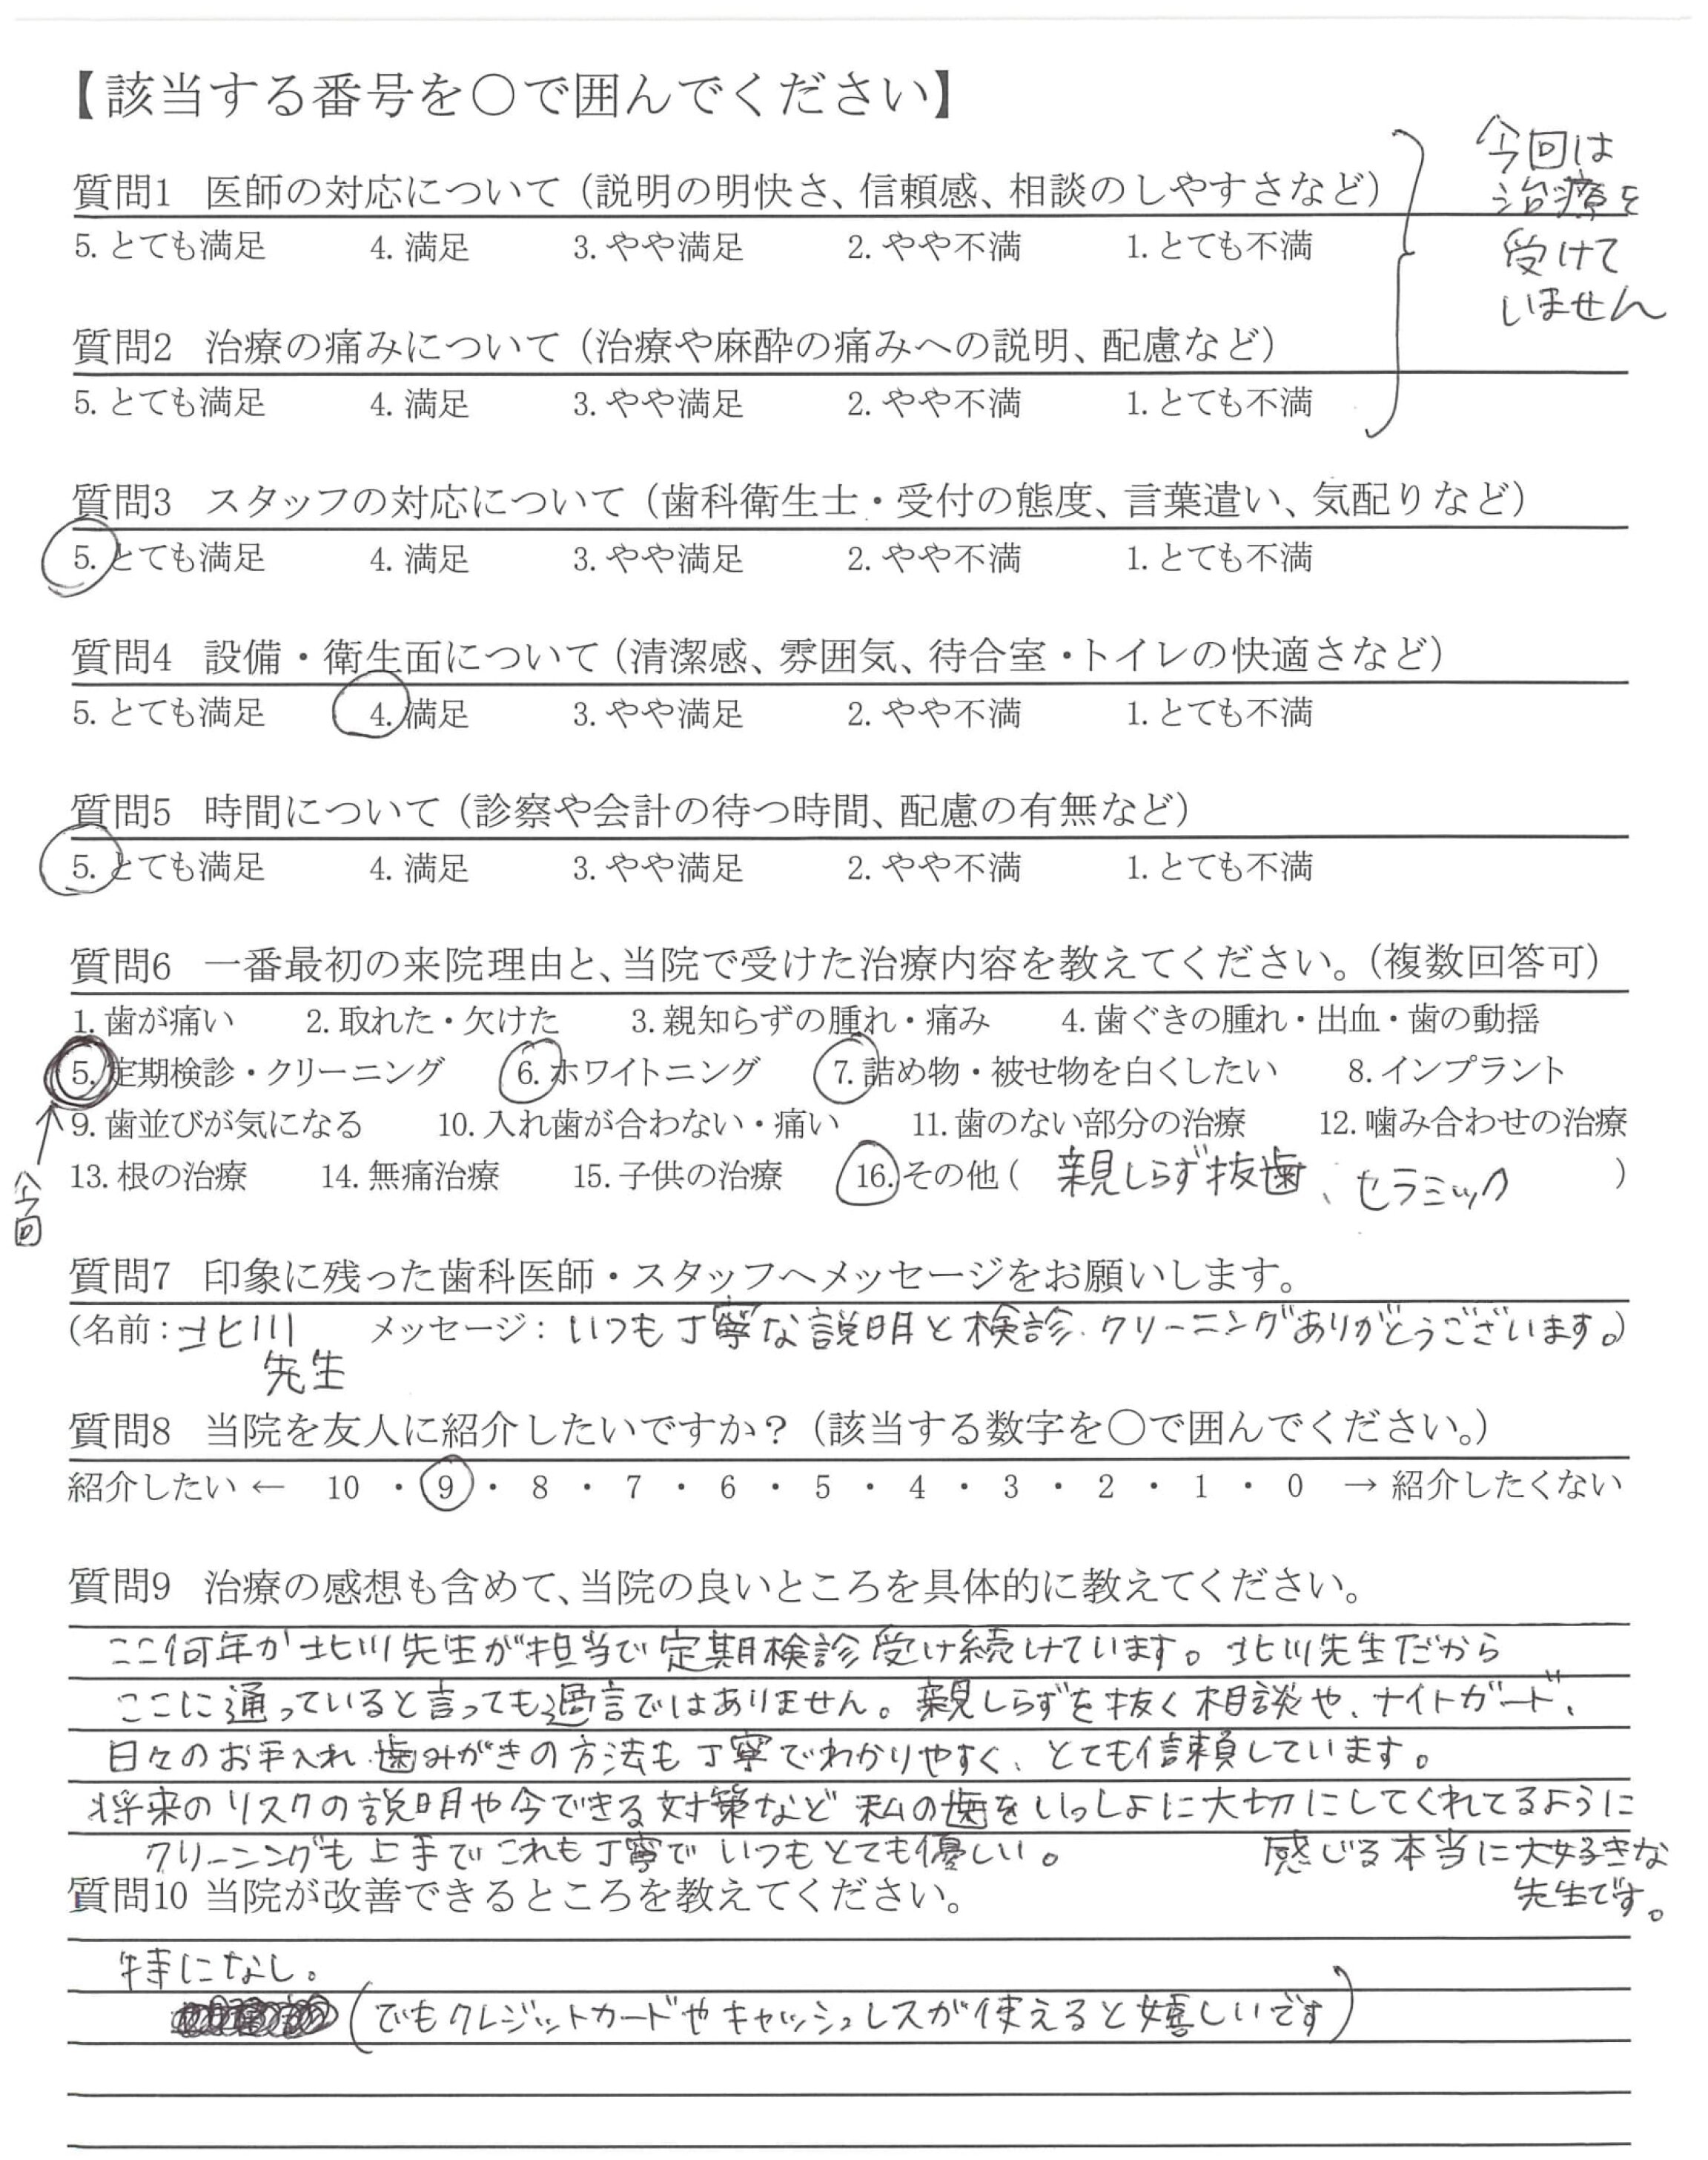 【該当する番号を〇で囲んでください】
今回は
治療を
受けて
いません
質問1 医師の対応について（説明の明快さ、信頼感、相談のしやすさなど）
5. とても満足 4. 満足 3. やや満足 2. やや不満 1. とても不満
質問2 治療の痛みについて（治療や麻酔の痛みへの説明、配慮など）
5. とても満足 4. 満足 3. やや満足 2. やや不満 1. とても不満
質問3 スタッフの対応について（歯科衛生士・受付の態度、言葉遣い、気配りなど）
5. とても満足 4. 満足 3. やや満足 2. やや不満 1. とても不満
質問4 設備・衛生面について（清潔感、雰囲気、待合室・トイレの快適さなど）
5. とても満足 4. 満足 3. やや満足 2. やや不満 1. とても不満
質問5 時間について（診察や会計の待つ時間、配慮の有無など）
5. とても満足 4. 満足 3. やや満足 2. やや不満 1. とても不満
質問6 一番最初の来院理由と、当院で受けた治療内容を教えてください。（複数回答可）
1. 歯が痛い 2. 取れた・欠けた 3. 親知らずの腫れ・痛み 4. 歯ぐきの腫れ・出血・歯の動揺
5. 定期検診・クリーニング 6. ホワイトニング 7. 詰め物・被せ物を白くしたい 8. インプラント
9. 歯並びが気になる 10. 入れ歯が合わない・痛い 11. 歯のない部分の治療 12. 噛み合わせの治療
13. 根の治療 14. 無痛治療 15. 子供の治療 16. その他（ 親しらず抜歯、セラミック ）
今回
質問7 印象に残った歯科医師・スタッフへメッセージをお願いします。
（名前：北川 メッセージ：いつも丁寧な説明と検診、クリーニングありがとうございます。）
先生
質問8 当院を友人に紹介したいですか？（該当する数字を〇で囲んでください。）
紹介したい ← 10 ・ 9 ・ 8 ・ 7 ・ 6 ・ 5 ・ 4 ・ 3 ・ 2 ・ 1 ・ 0 → 紹介したくない
質問9 治療の感想も含めて、当院の良いところを具体的に教えてください。
ここ何年か北川先生が担当で定期検診受け続けています。北川先生だから
ここに通っていると言っても過言ではありません。親しらずを抜く相談や、ナイトガード、
日々のお手入れ、歯みがきの方法も丁寧でわかりやすく、とても信頼しています。
将来のリスクの説明や今できる対策など私の歯をいっしょに大切にしてくれてるように
感じる本当に大好きな
先生です。
クリーニングも上手でこれも丁寧でいつもとても優しい。
質問10 当院が改善できるところを教えてください。
特になし。
（でもクレジットカードやキャッシュレスが使えると嬉しいです）